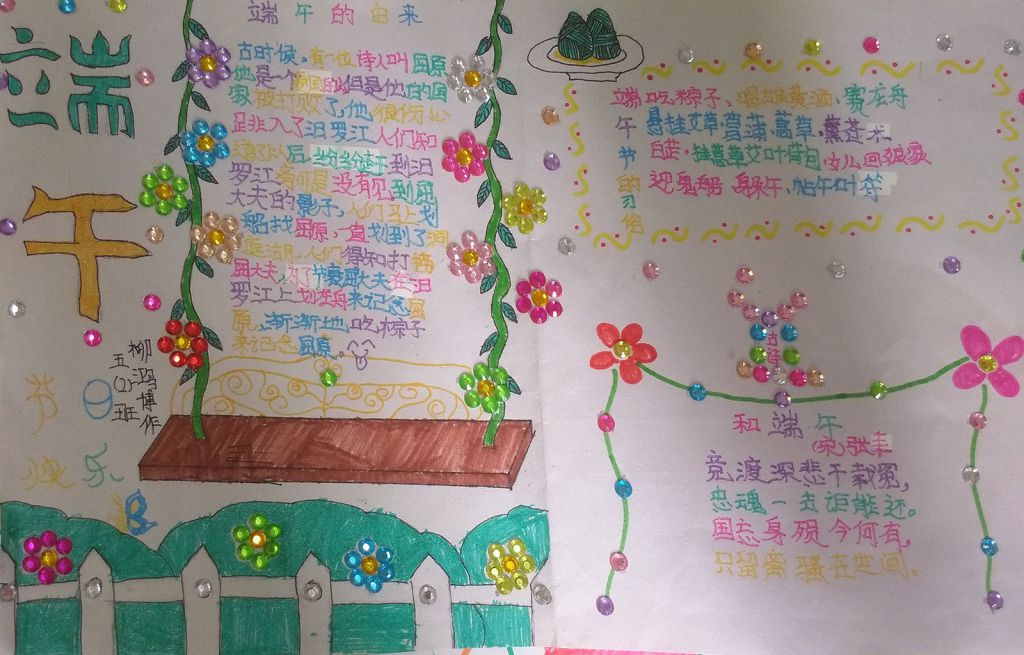 端午
节日快乐
五(2)班
柳鸿博作
端午的由来
古时候,有一位诗人叫屈原
他是一个爱国的但是他的国
家被打败了,他很伤心
江人们知
后,当纷纷到汨
罗江 可是没有见到屈
大夫的影子,人们马上划
船找屈原,一直划到了洞
庭湖,人们得知打捞
屈大夫,为了 屈大夫在汨
罗江上划龙舟来记念屈
原,渐渐地吃粽子
来记念屈原。
端午节的习俗
吃粽子、喝雄黄酒、赛龙舟
悬挂艾草菖蒲、蒿草,薰苍术
白芷,挂 草艾叶荷包
迎鬼船 躲午,帖午叶符
古诗
和端午
(宋)张耒
竞渡深悲千载冤,
忠魂一去讵能还。
国忘身殒今何有,
只留离骚在空间。